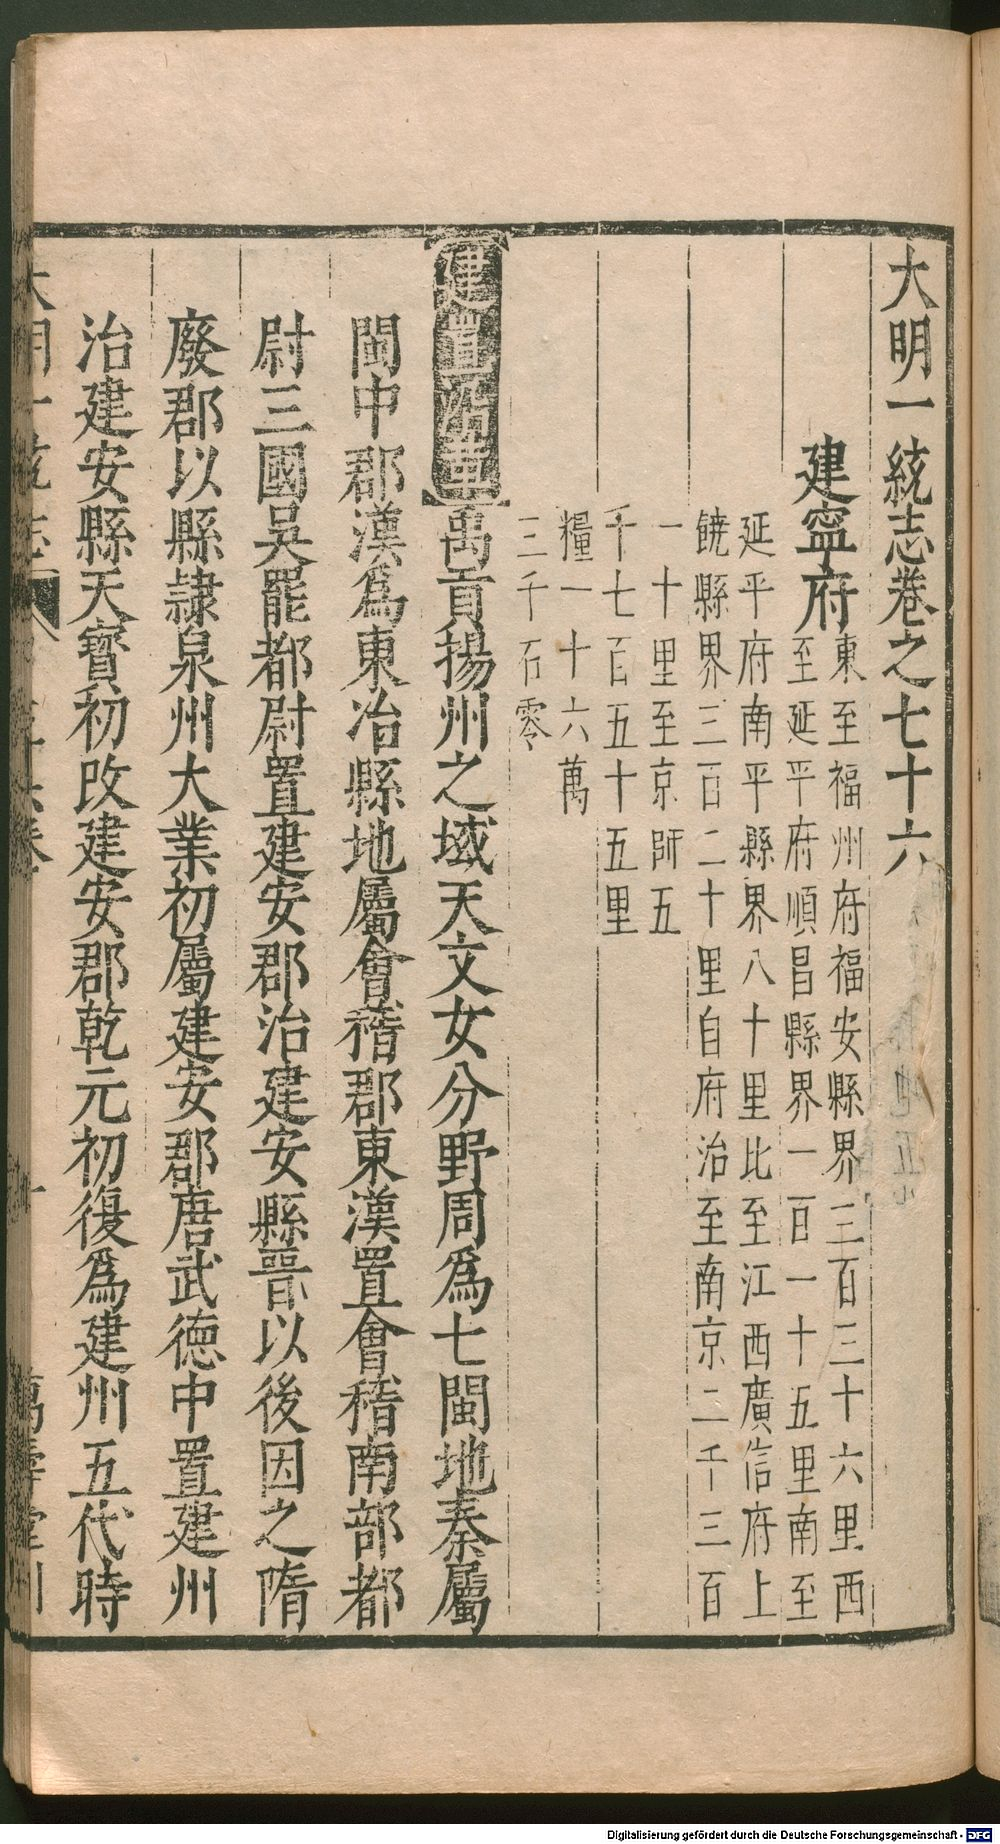 大明一統志卷之七十六
建寧府
東至福州府福安縣界三百三十六里西
至延平府順昌縣界一百一十五里南至
延平府南平縣界八十里比至江西廣信府上
饒縣界三百二十里自府治至南京二千三百
一十里至京師五
千七百五十五里
糧一十六萬
三千石零
建置沿革禹貢揚州之域天文女分野周爲七閩地秦屬
閩中郡漢爲東冶縣地屬會稽郡東漢置會稽南部都
尉三國吳罷都尉置建安郡治建安縣晉以後因之隋
廢郡以縣隷泉州大業初屬建安郡唐武德中置建州
治建安縣天寳初改建安郡乾元初復爲建州五代時
大明一統志
Digitalisierung gefördert durch die Deutsche Forschungsgemeinschaft - DFG